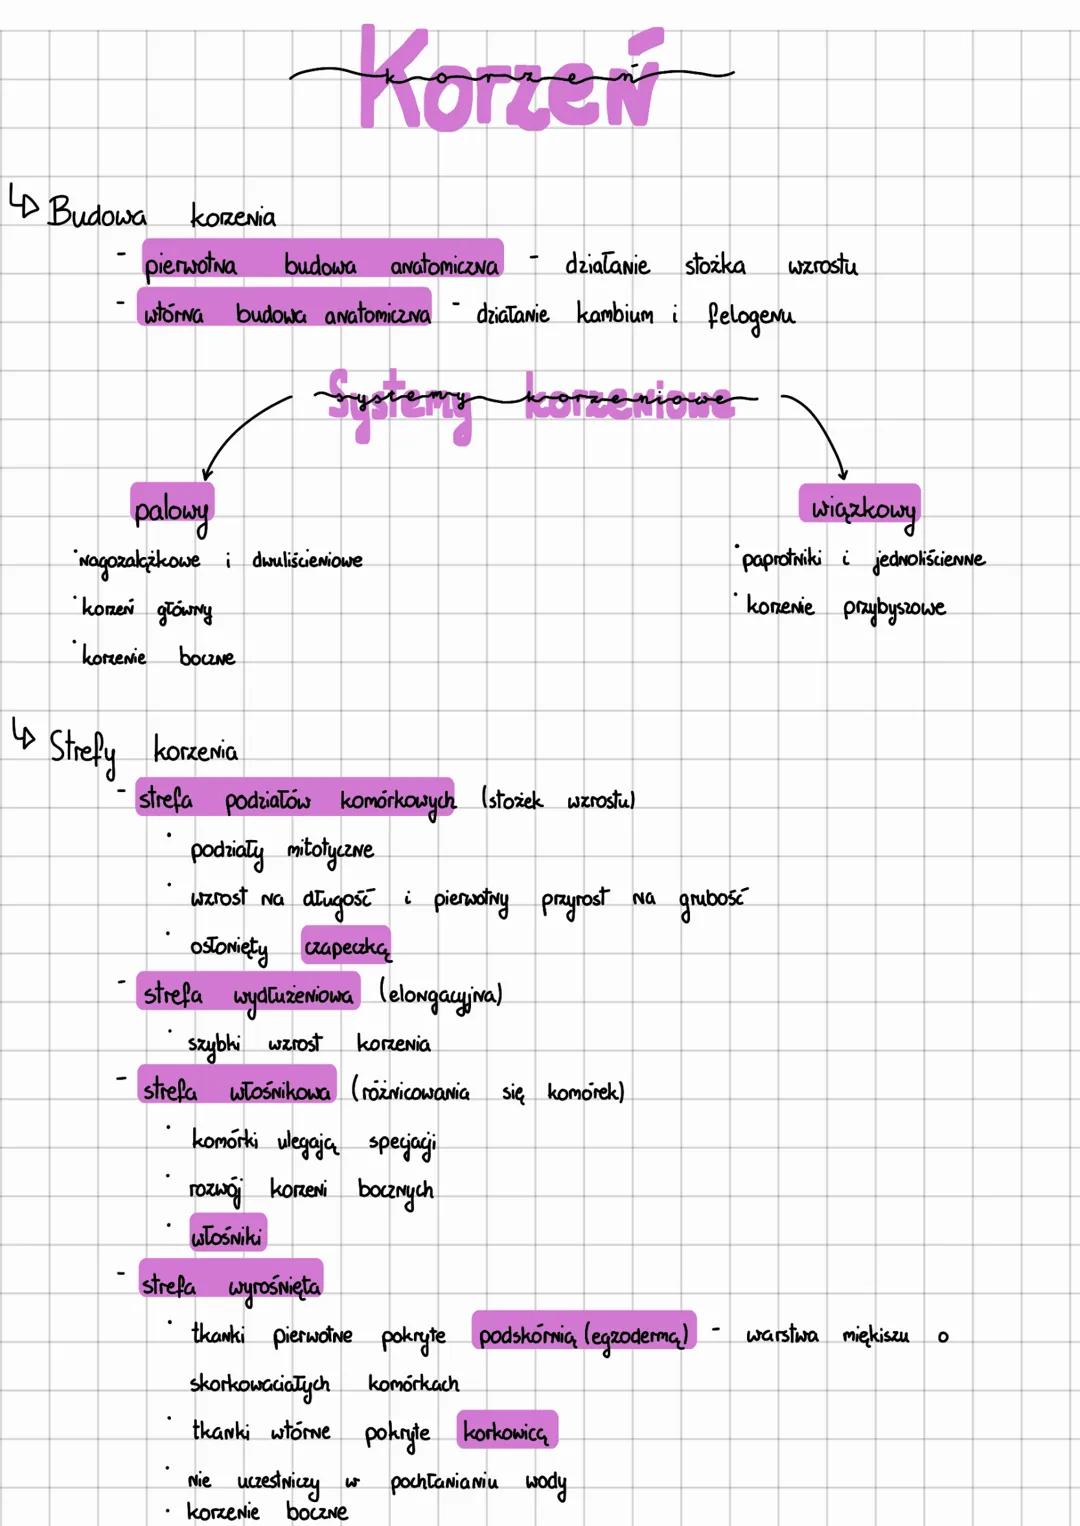 Korzeń
korzeń
↳ Budowa korzenia
- pierwotna budowa anatomiczna - działanie stożka wzrostu
- wtórna budowa anatomiczna - działanie kambium i felogenu
Systemy korzeniowe
systemy korzeniowe
palowy
• nagozalążkowe i dwuliścieniowe
• korzeń główny
• korzenie boczne
wiązkowy
• paprotniki i jednoliścienne
• korzenie przybyszowe
↳ Strefy korzenia
- strefa podziałów komórkowych (stożek wzrostu)
• podziały mitotyczne
• wzrost na długość i pierwotny przyrost na grubość
• osłonięty czapeczką
- strefa wydłużeniowa (elongacyjna)
• szybki wzrost korzenia
- strefa włośnikowa (różnicowania się komórek)
• komórki ulegają specjacji
• rozwój korzeni bocznych
• włośniki
- strefa wyrośnięta
• tkanki pierwotne pokryte podskórnią (egzodermą) - warstwa miękiszu o
skorkowaciałych komórkach
• tkanki wtórne pokryte korkowicą
• nie uczestniczy w pochłanianiu wody
• korzenie boczne